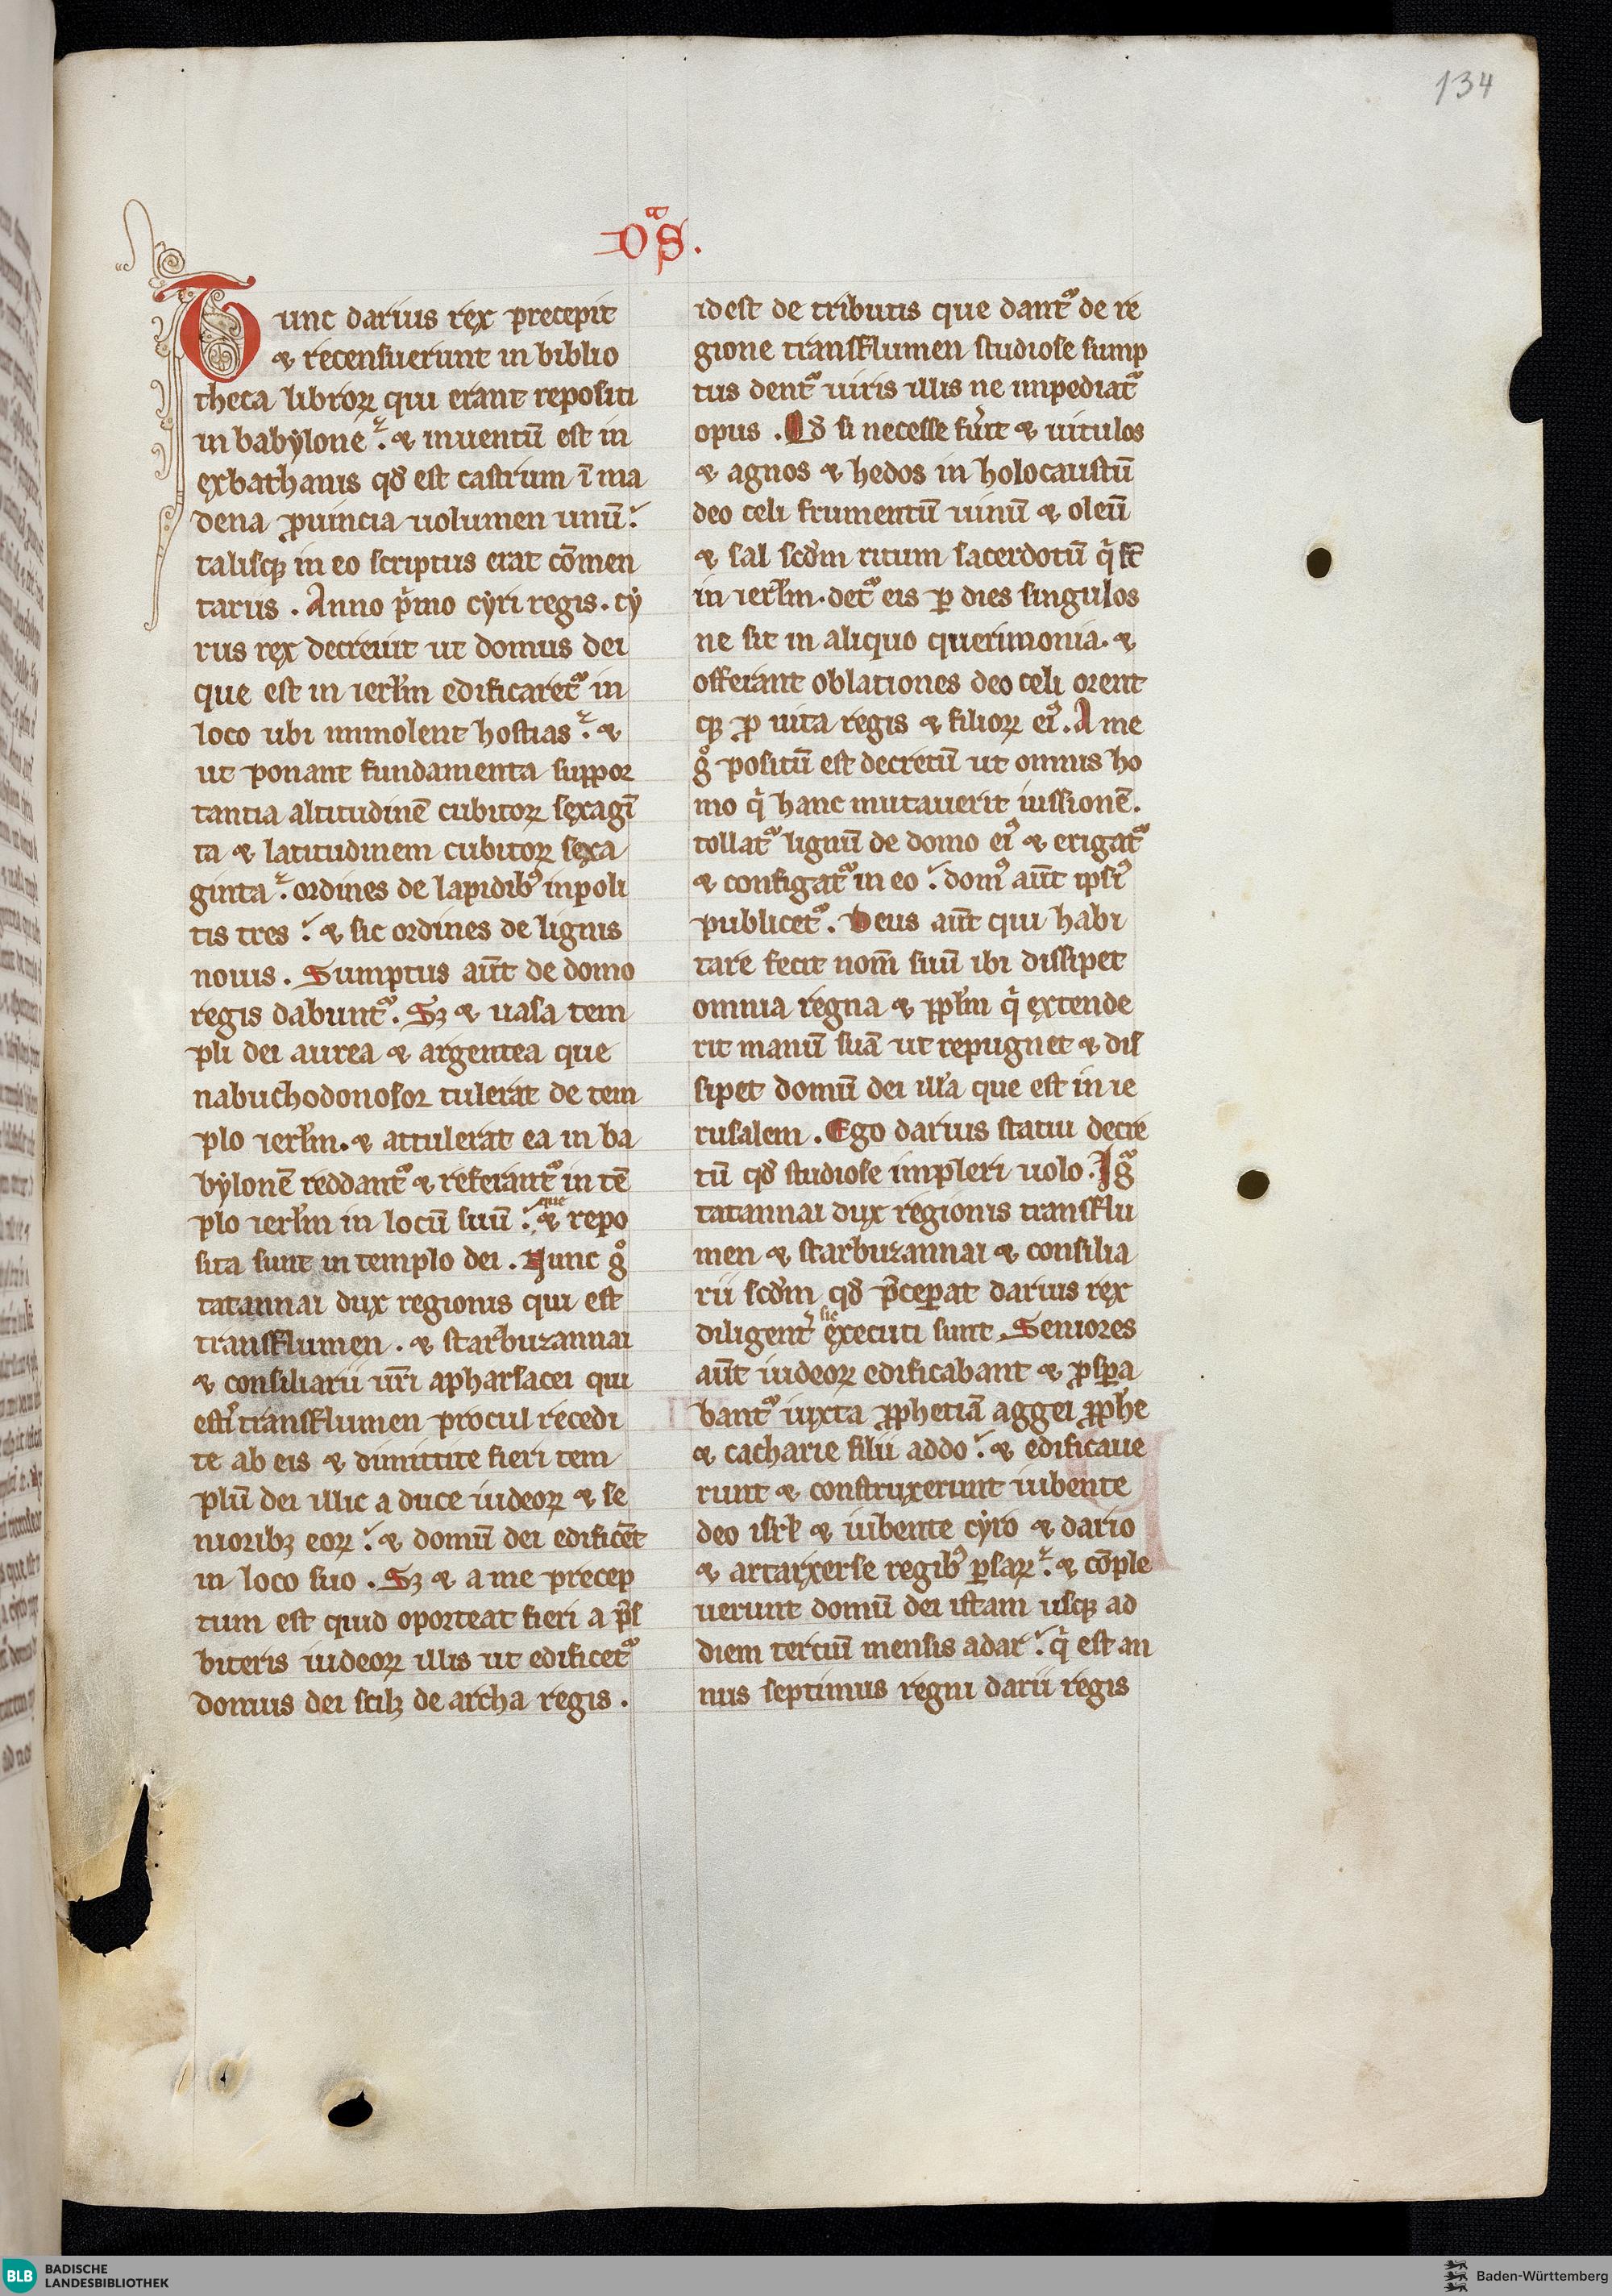 134
Oꝝᵃ.
Tunc darius rex precepit
⁊ recensuerunt in biblio
theca libroꝝ qui erant repositi
in babylone. ⁊ inuentū est in
exbathanis qđ est castrum ī ma
dena ꝓuincia uolumen unū.
talisqꝫ in eo scriptus erat cōmen
tariis. Anno pͥmo cyri regis. cy
rus rex decreuit ut domus dei
que est in ierłm edificaretᷣ in
loco ubi immolent hostias. ⁊
ut ponant fundamenta suppor
tantia altitudinē cubitoꝝ sexagī
ta ⁊ latitudinem cubitoꝝ sexa
ginta. ordines de lapidibꝰ inpoli
tis tres. ⁊ sic ordines de lignis
nouis. Sumptus aūt de domo
regis dabuntᷣ. Sꝫ ⁊ uasa tem
pli dei aurea ⁊ argentea que
nabuchodonosor tulerat de tem
plo ierłm. ⁊ attulerat ea in ba
bylonē reddantᷣ ⁊ referantᷣ in tē
plo ierłm in locū suū. que ⁊ repo
sita sunt in templo dei. Nunc gͦ
tatannai dux regionis qui est
transflumen. ⁊ starbuzannai
⁊ consiliarii ur̄i apharsacei qui
estiꝰ transflumen procul recedi
te ab eis ⁊ dimittite fieri tem
plū dei illic a duce iudeoꝝ ⁊ se
nioribꝫ eoꝝ. ⁊ domū dei edificēt
in loco suo. Sꝫ ⁊ a me precep
tum est quid oporteat fieri a p̄s
biteris iudeoꝝ illis ut edificetᷣ
domus dei scilꝫ de archa regis.
idest de tributis que dantᷣ de re
gione transflumen studiose sump
tus dentᷣ uiris illis ne impediatᷣ
opus. Qđ si necesse fu̾it ⁊ uitulos
⁊ agnos ⁊ hedos in holocaustū
deo celi frumentū uinū ⁊ oleū
⁊ sal scđm ritum sacerdotū qͥ st̄
in ierłm. detᷣ eis ꝑ dies singulos
ne sit in aliquo querimonia. ⁊
offerant oblationes deo celi orent
qꝫ ꝓ uita regis ⁊ filioꝝ eiꝰ. A me
gͦ positū est decretū ut omnis ho
mo qͥ hanc mutauerit iussionē.
tollatᷣ lignū de domo eiꝰ ⁊ erigatᷣ
⁊ configatᷣ in eo. domꝰ aūt ipsiꝰ
publicetᷣ. Deus aūt qui habi
tare fecit nom̄ suū ibi dissipet
omnia regna ⁊ ppłm qͥ extende
rit manū suā ut repugnet ⁊ dis
sipet domū dei illā que est in ie
rusalem. Ego darius statui decre
tū qđ studiose impleri uolo. Igᷣ
tatannai dux regionis transflu
men ⁊ starbuzannai ⁊ consilia
rii scđm qđ p̄ceꝑat darius rex
diligent̾ sic executi sunt. Seniores
aūt iudeoꝝ edificabant ⁊ ꝓsꝑa
bantᷣ iuxta ꝓphetiā aggei ꝓphē
⁊ cacharie filii addo. ⁊ edificaue
runt ⁊ construxerunt iubente
deo isrł ⁊ iubente cyro ⁊ dario
⁊ artarxerse regibꝰ ꝑsaꝝ. ⁊ cōple
uerunt domū dei istam usqꝫ ad
diem terciū mensis adar. qͥ est an
nus septimus regni darii regis
BLB BADISCHE
LANDESBIBLIOTHEK
Baden-Württemberg